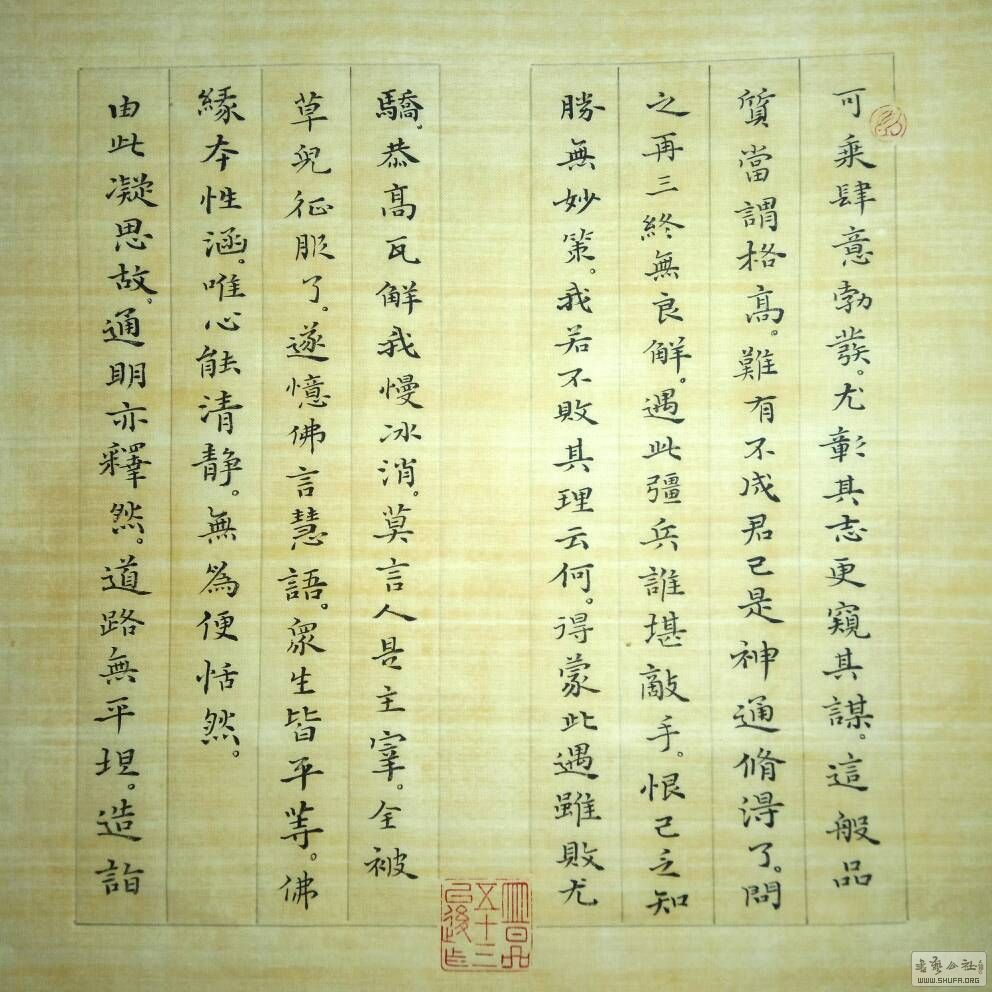 可乘肆意勃發。尤彰其志更窺其謀。這般品
質當謂格高。難有不成君已是神通脩得了。問
之再三終無良解。遇此彊兵誰堪敵手。恨己乏知
勝無妙策。我若不敗其理云何。得蒙此遇雖敗尤
驕。恭高瓦解我慢冰消。莫言人是主宰。全被
草兒征服了。遂憶佛言慧語。眾生皆平等。佛
緣本性涵。唯心能清静。無為便恬然。
由此凝思故。通明亦釋然。道路無平坦。造詣
書藝公社
WWW.SHUFA.ORG